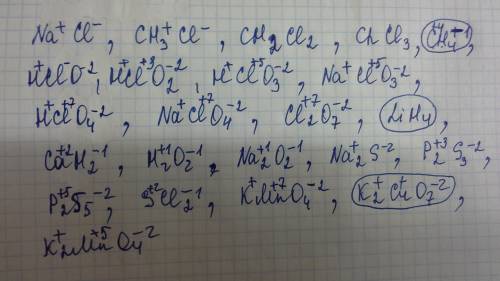 Na⁺Cl⁻, CH₃⁺Cl⁻, CH₂Cl₂, ChCl₃,
H⁺Cl⁻O⁻², H⁺Cl⁺³O₂⁻², H⁺Cl⁺⁵O₃⁻², Na⁺Cl⁺⁵O₃⁻²,
H⁺Cl⁺⁷O₄⁻², Na⁺Cl⁺⁷O₄⁻², Cl₂⁺⁷O₇⁻², LiH₄,
Ca⁺²H₂⁻¹, H₂⁺¹O₂⁻¹, Na₂⁺¹O₂⁻¹, Na₂⁺S⁻², P₂⁺³S₃⁻²,
P₂⁺⁵S₅⁻², S⁺²Cl₂⁻¹, K⁺Mn⁺⁷O₄⁻², K₂⁺ O₇⁻²,
K₂⁺Mn⁺⁵O₄⁻²